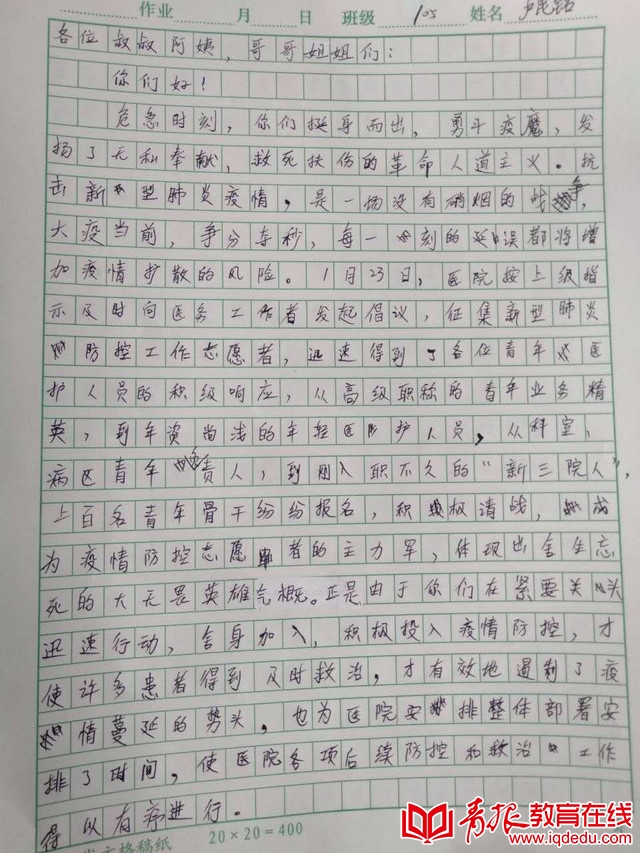 作业 月 日 班级 105 姓名
各位叔叔阿姨,哥哥姐姐们:
你们好!
危急时刻,你们挺身而出,勇斗疫魔,发
扬了无私奉献,救死扶伤的革命人道主义。抗
击新型肺炎疫情,是一场没有硝烟的战争,
大疫当前,争分夺秒,每一刻的延误都将增
加疫情扩散的风险。1月23日,医院按上级指
示及时向医务工作者发起倡议,征集新型肺炎
防控工作志愿者,迅速得到了各位青年医
护人员的积级响应,从高级职称的青年业务精
英,到年资尚浅的年轻医护人员,从科室、
病区青年责人,到刚入职不久的“新三院人”,
上百名青年骨干纷纷报名,积极请战,成
为疫情防控志愿者的主力军,体现出舍生忘
死的大无畏英雄气概。正是由于你们在紧要关头
迅速行动,舍身加入,积极投入疫情防控,才
使许多患者得到及时救治,才有效地遏制了疫
情蔓延的势头,也为医院安排整体部署安
排了时间,使医院各项后续防控和救治工作
得以有序进行。
方格稿纸 20×20=400
青报教育在线
www.iqdedu.com